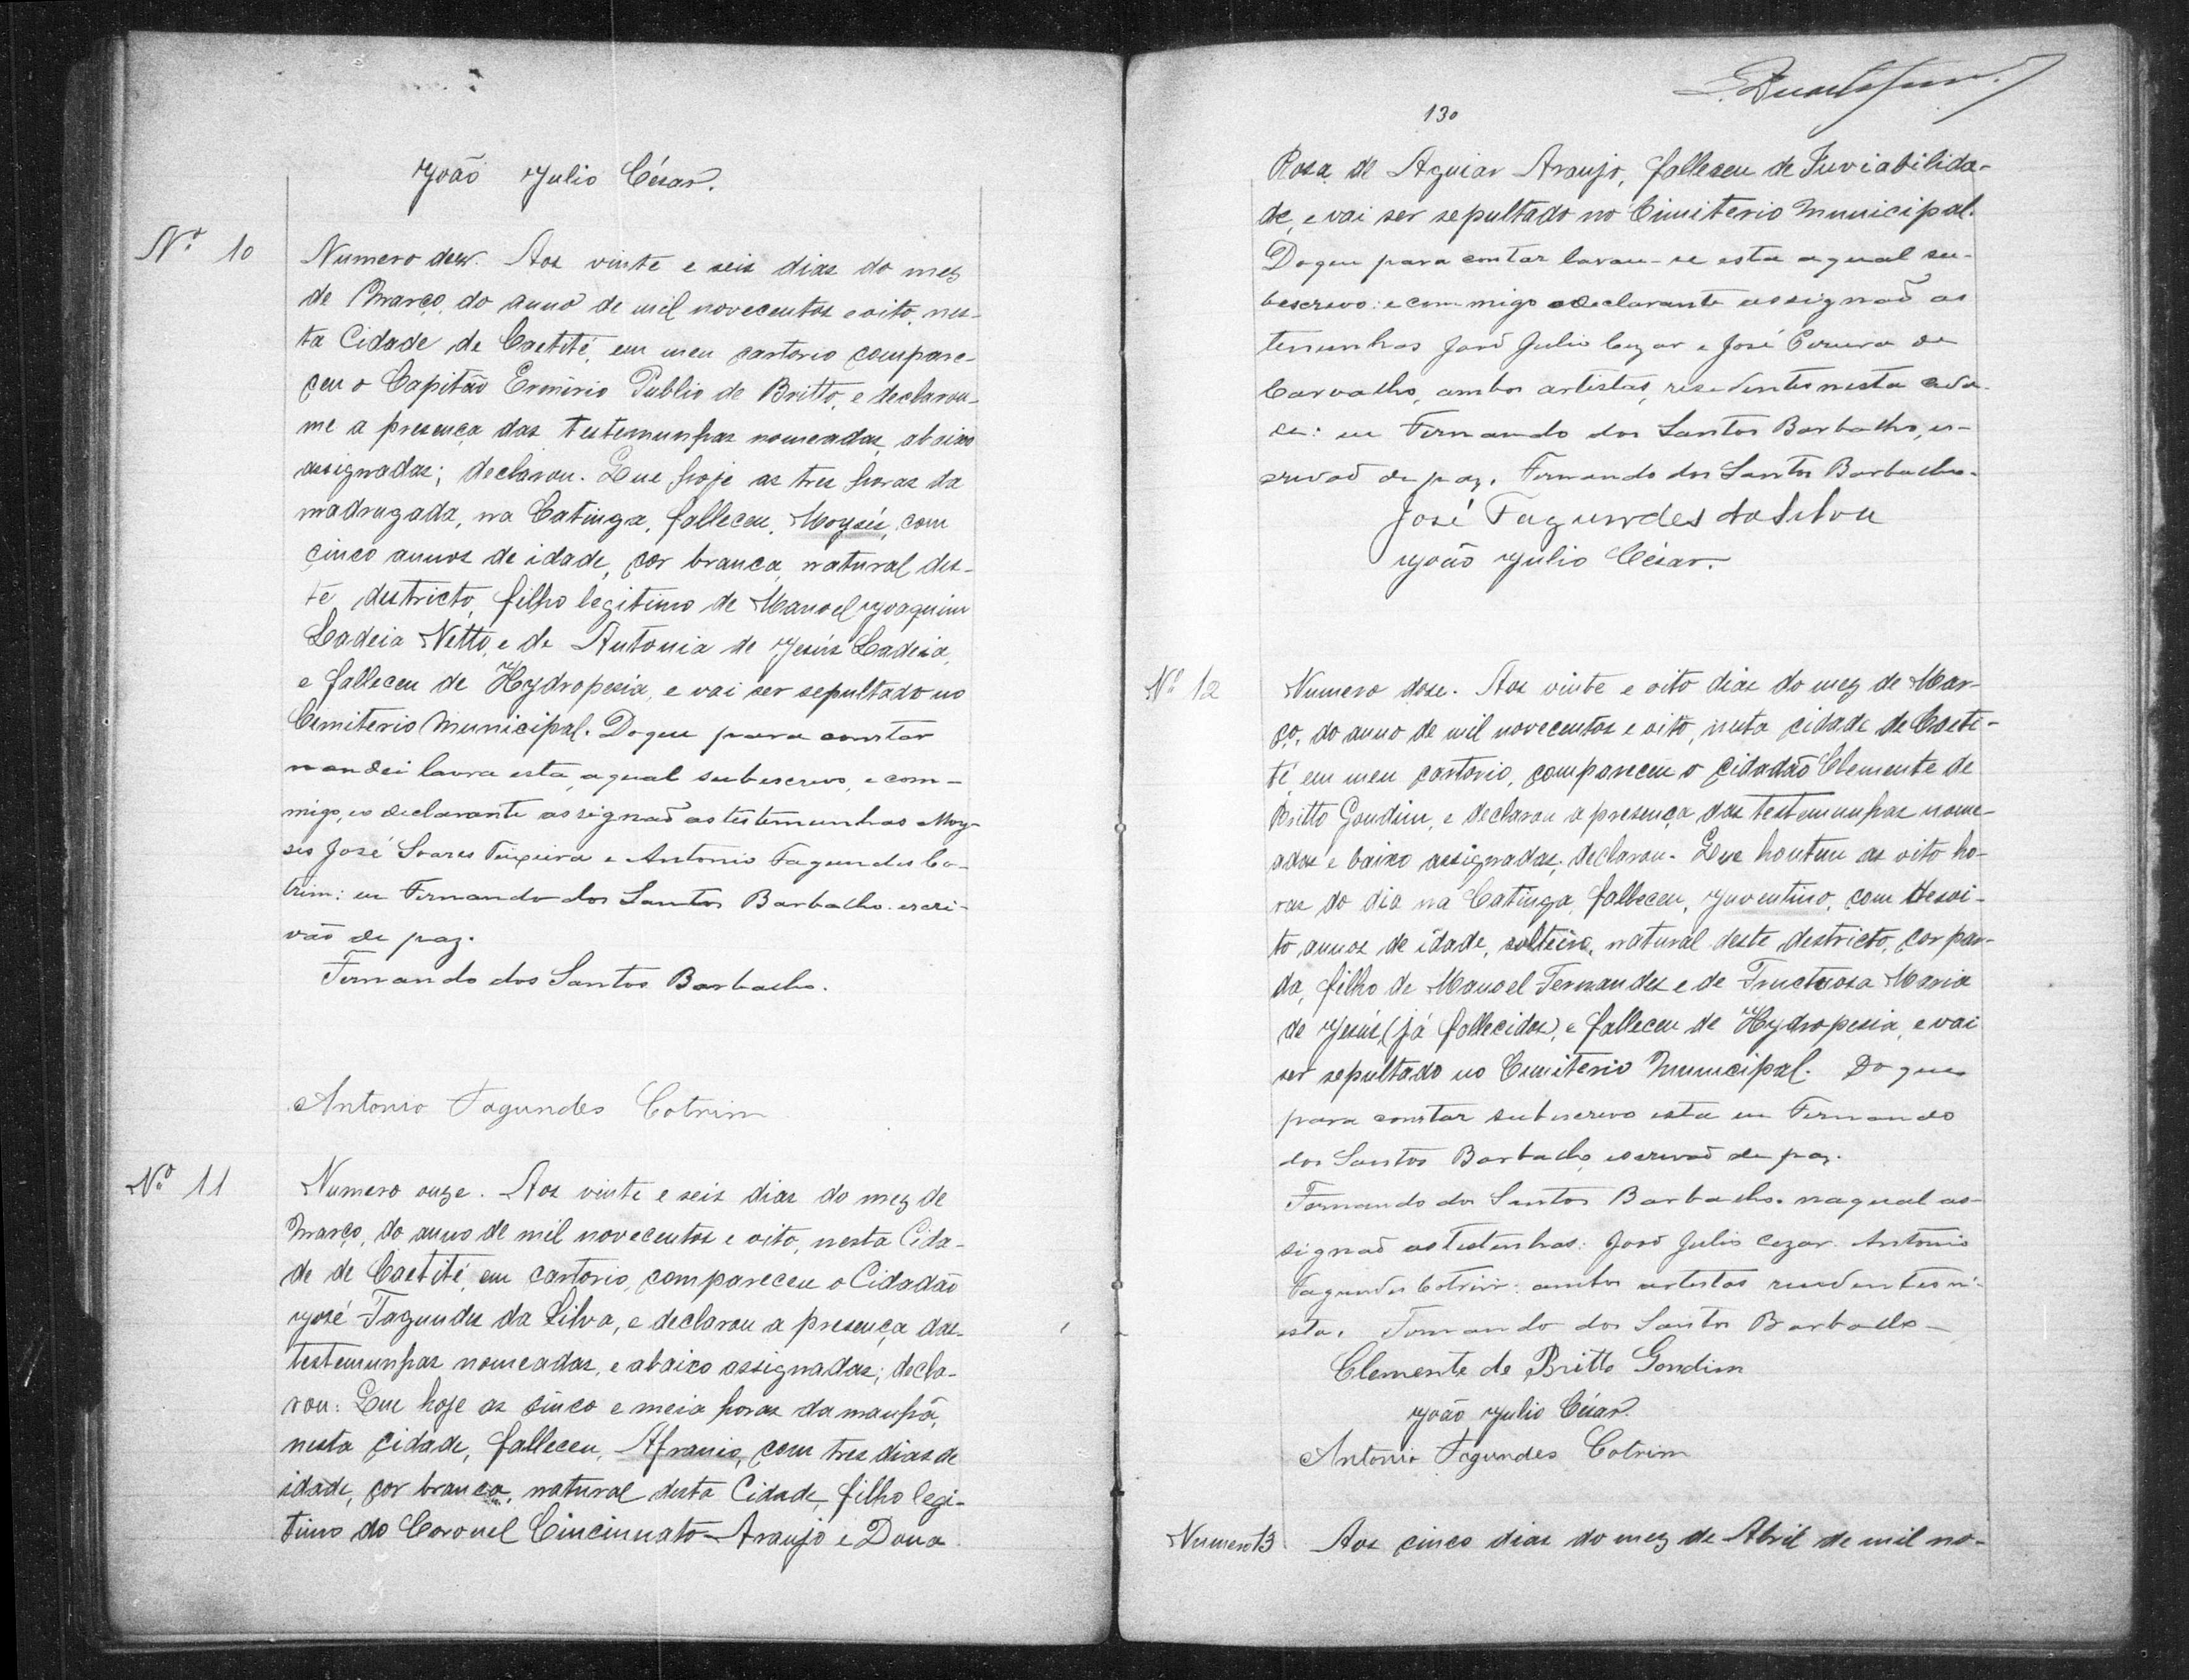 João Julio César.
Nº 10
Numero dez. Aos vinte e seis dias do mez
de Março, do anno de mil novecentos e oito, nes-
ta Cidade de Caetité, em meu cartorio compare-
ceu o Capitão Ermirio Publio de Britto, e declarou-
me a presença das testemunhas nomeadas, abaixo
assignadas; declarou. Que hoje as tres horas da
madrugada, na Catinga, falleceu, Moysés, com
cinco annos de idade, cor branca, natural des-
te districto, filho legitimo de Manoel Joaquim
Ladeia Netto, e de Antonia de Jesús Ladeia,
e falleceu de Hydropesia, e vai ser sepultado no
Cimiterio Municipal. Do que para constar
mandei lavra esta, a qual subescrevo, e com-
migo, eo declarante assignaõ as testemunhas Moy-
ses José Soares Teixeira e Antonio Fagundes Co-
trim: eu Fernando dos Santos Barbalho escri-
vão de paz.
Fernando dos Santos Barbalho.
Antonio Fagundes Cotrim
Nº 11
Numero onze. Aos vinte e seis dias do mez de
Março, do anno de mil novecentos e oito, nesta Cida-
de de Caetité, em cartorio, compareceu o Cidadão
José Fagundes da Silva, e declarou a presença das
testemunhas nomeadas, e abaixo assignadas; decla-
rou: Que hoje as sinco e meia horas da manhã,
nesta cidade, falleceu, Afranio, com tres dias de
idade, cor branca, natural desta Cidade, filho legi-
timo do Coronel Cincinnato Araujo e Dona
130
Rosa de Aguiar Araujo, falleseu de Inviabilida-
de, e vai ser sepultado no Cimiterio Municipal.
Do que para contar lavrau-se esta a qual su-
bescrevo: e commigo o declarante assignaõ as
temunhas Joaõ Julio Cezar e José Pereira de
Carvalho, ambos artistas, residentes nesta cida-
de: eu Fernando dos Santos Barbalho, es-
crivaõ de paz. Fernando dos Santos Barbalho.
José Fagundes da Silva
João Julio César.
Nº 12
Numero dose. Aos vinte e oito dias do mez de Mar-
ço, do anno de mil novecentos e oito, nesta cidade de Caeti-
té, em meu cartorio, compareceu o cidadão Clemente de
Britto Gondim, e declarou a presença das testemunhas nome-
adas e baixo assignadas; declarou. Que hontem as oito ho-
ras do dia na Catinga, falleceu, Juventino, com desoi-
to annos de idade, solteiro, natural deste destricto, cor par-
da, filho de Manoel Fernandes e de Fructuosa Maria
de Jesús, (já fallecidos), e falleceu de Hydropesia, e vai
ser sepultado no Cimiterio Municipal. Do que
para constar subescrevo esta eu Fernando
dos Santos Barbalho, escrivaõ de paz.
Fernando dos Santos Barbalho. naqual as-
signaõ as testenhas: Joaõ Julio Cezar. Antonio
Fagundes Cotrim: ambos artistas residentes n'
esta. Fernando dos Santos Barbalho
Clemente de Britto Gondim
João Julio César.
Antonio Fagundes Cotrim
Numero 13 Aos cinco dias do mez de Abril de mil no-